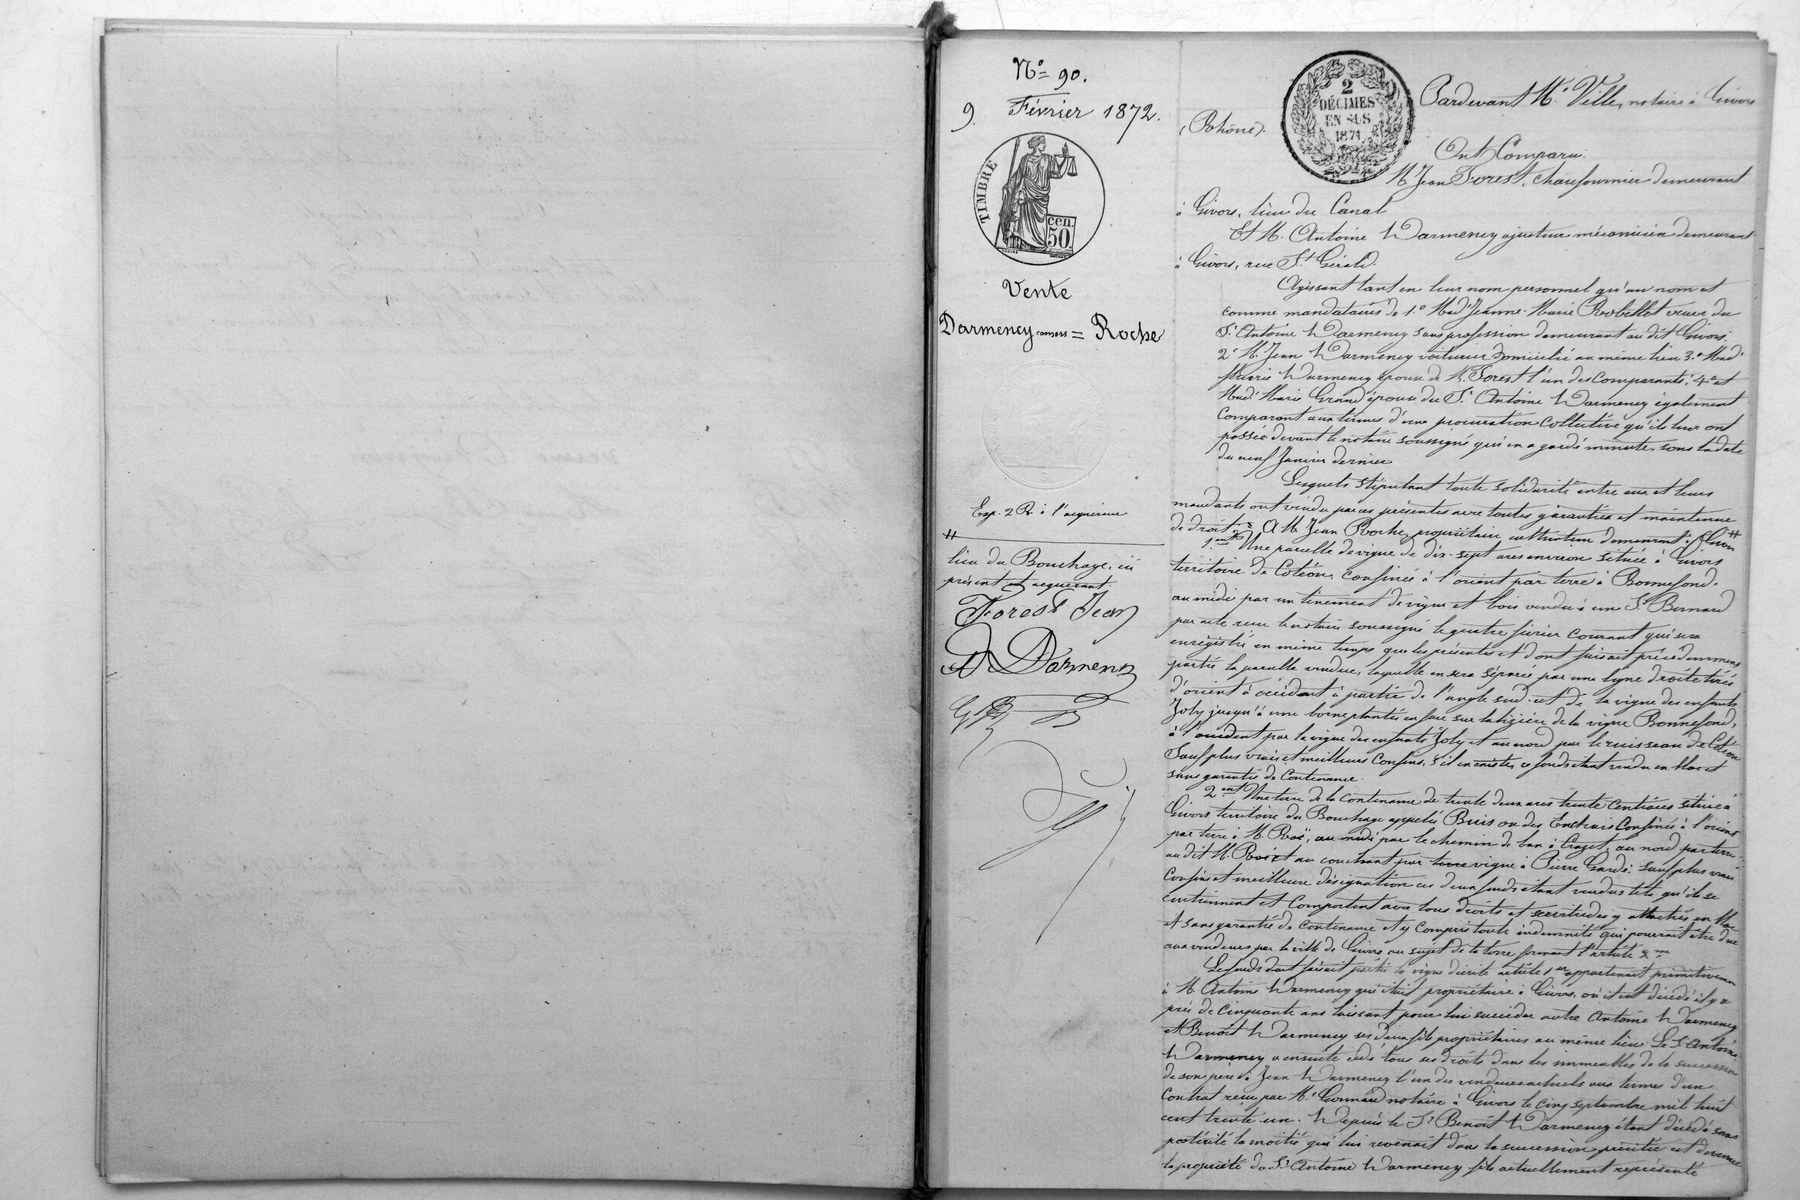 N° 90.
9. Février 1872.
TIMBRE
cen.
50.
Vente
Darmency consors = Roche
Exp. 2 R. à l'acquéreur
#
lieu du Bouchage, ici
présent et acquérant
Forest Jean
A Darmency
2
DÉCIMES
EN SUS
1871
Pardevant Me Ville, notaire à Givors
(Rhône).
Ont Comparu.
M. Jean Forest, chaufournier demeurant
à Givors, lieu du Canal
Et M. Antoine Darmency ajusteur mécanicien demeurant
à Givors, rue St Gérald.
Agissant tant en leur nom personnel qu'au nom et
comme mandataires de 1.° Made Jeanne Marie Robellet veuve du
Sr Antoine Darmency sans profession demeurant au dit Givors;
2° M. Jean Darmency voiturier domicilié au même lieu 3.° Made
Marie Darmency épouse de M. Forest l'un des comparants; 4° et
Made Marie Grand épouse du Sr Antoine Darmency également
comparant aux termes d'une procuration collective qu'ils leur ont
passée devant le notaire soussigné qui en a gardé minute, sous la date
du neuf Janvier dernier
Lesquels stipulant toute solidarité entre eux et leurs
mandants ont vendu par ces présentes avec toutes garanties et maintenue
de droit, A M. Jean Roche, propriétaire cultivateur demeurant à Givors #
1ment Une parcelle de vigne de dix-sept ares environ située à Givors
territoire de Cotéon, confinée à l'orient par terre à Bonnefond.
au midi par un tènement de vigne et bois vendu à un Sr Bernard
par acte reçu le notaire soussigné le quatre février courant qui sera
enregistré en même temps que les présentes et dont faisait précédemment
partie la parcelle vendue, laquelle en sera séparée par une ligne droite tirée
d'orient à occident à partir de l'angle sud-est de la vigne des enfants
Joly jusqu'à une borne plantée en face sur la lizière de la vigne Bonnefond,
à l'occident par la vigne des enfants Joly et au nord par le ruisseau de Cotéon
sauf plus vrais et meilleurs confins, s'il en existe; ce fonds étant vendu en bloc et
sans garantie de contenance.
2ent Une terre de la contenance de trente deux ares trente centiares située à
Givors territoire du Bouchage appelée Buis ou des Enclrais confinée à l'orient
par terre à M. Roë, au midi par le chemin de ban à Crozet, au nord par terre
au dit M. Roë et au couchant par terre vigne à Pierre Garde; sauf plus vrais
confins et meilleure désignation ces deux fonds étant vendus tels qu'ils se
contiennent et comportent avec tous droits et servitudes y attachés en bloc
et sans garantie de contenance et y compris toute indemnité qui pourrait être due
aux vendeurs par la ville de Givors au sujet de la terre formant l'article 2me
Le fonds dont faisait partie la vigne décrite article 1er appartenait primitivement
à M. Antoine Darmency qui était propriétaire à Givors, où il est décédé il y a
près de cinquante ans laissant pour lui succéder autre Antoine Darmency
et Benoît Darmency ses deux fils propriétaires au même lieu. Le Sr Antoine
Darmency a ensuite cédé tous ses droits dans les immeubles de la succession
de son père à Jean Darmency l'un des vendeurs actuels aux termes d'un
contrat reçu par Me Gonnard notaire à Givors le cinq septembre mil huit
cent trente un. Depuis le Sr Benoît Darmency étant décédé sans
postérité la moitié qui lui revenait dans la succession précitée est devenue
la propriété du Sr Antoine Darmency fils actuellement représenté